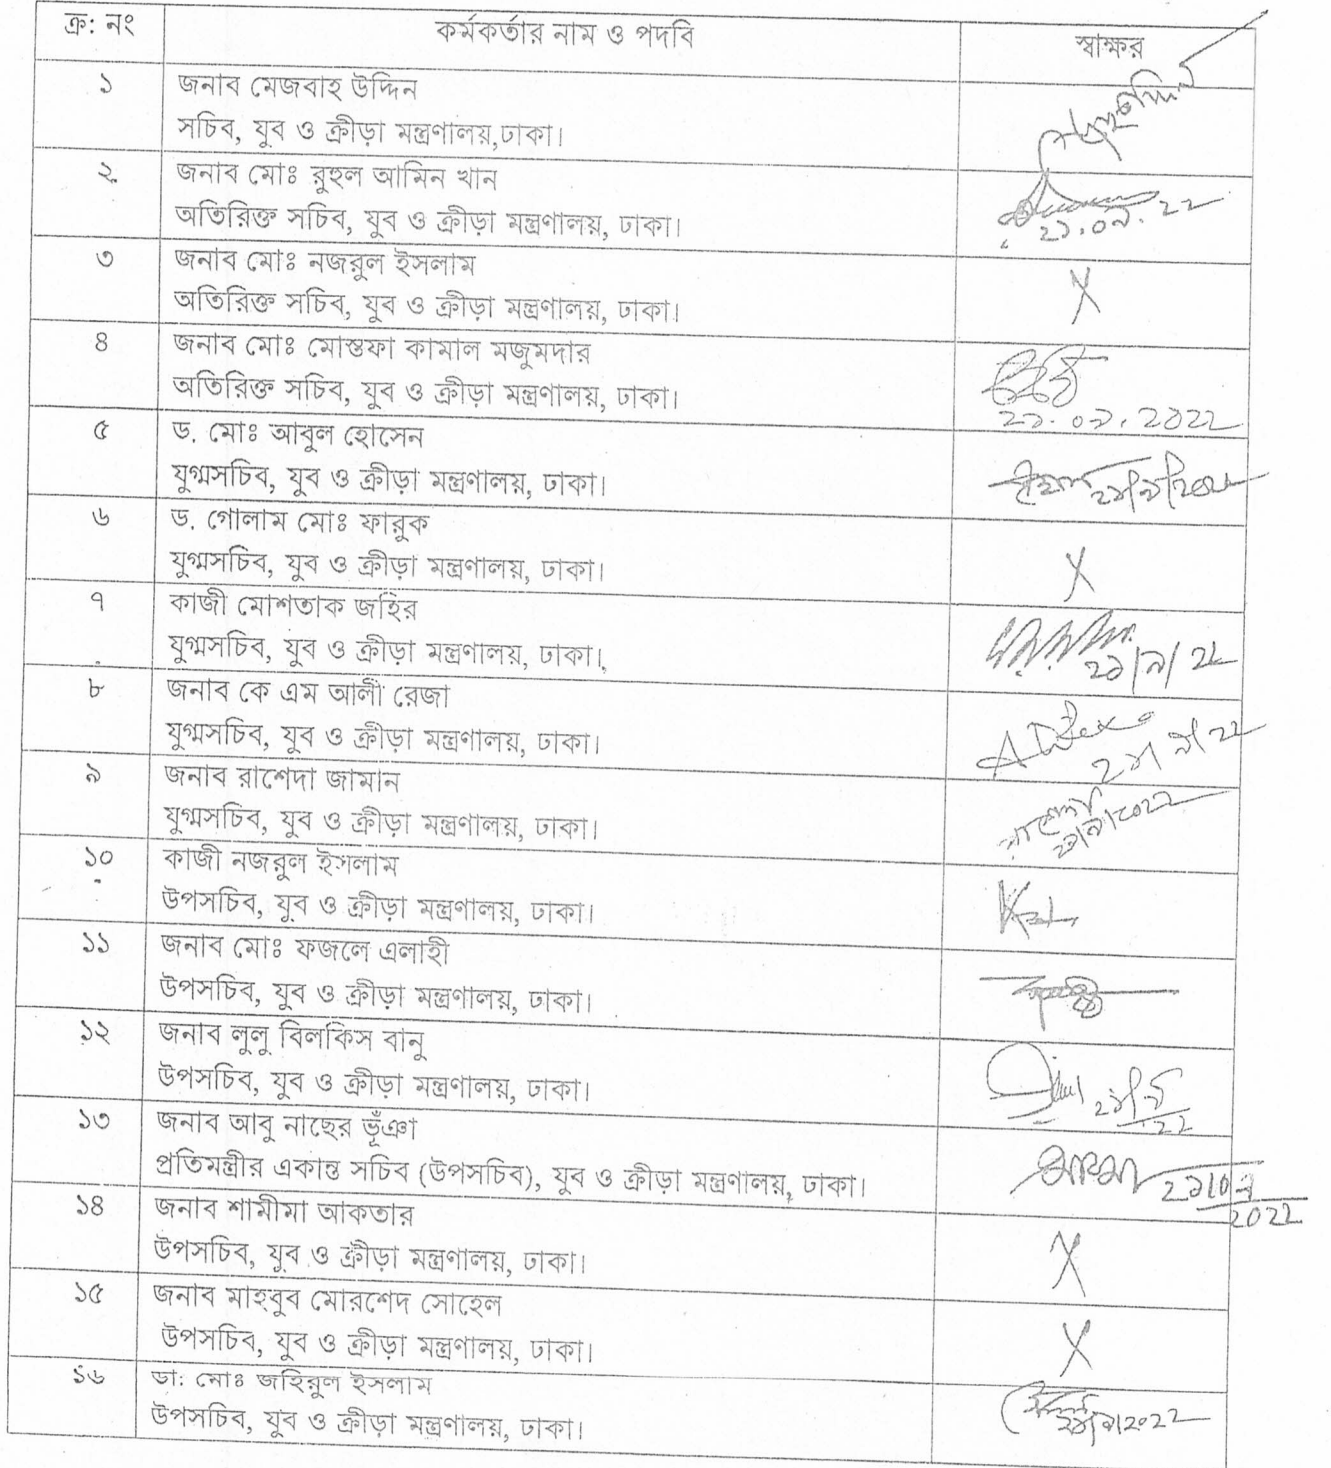 ক্র: নং কর্মকর্তার নাম ও পদবি স্বাক্ষর
১ জনাব মেজবাহ উদ্দিন
সচিব, যুব ও ক্রীড়া মন্ত্রণালয়,ঢাকা।
২ জনাব মোঃ রুহুল আমিন খান
অতিরিক্ত সচিব, যুব ও ক্রীড়া মন্ত্রণালয়, ঢাকা।
২১.০৯.২২
৩ জনাব মোঃ নজরুল ইসলাম
অতিরিক্ত সচিব, যুব ও ক্রীড়া মন্ত্রণালয়, ঢাকা। X
৪ জনাব মোঃ মোস্তফা কামাল মজুমদার
অতিরিক্ত সচিব, যুব ও ক্রীড়া মন্ত্রণালয়, ঢাকা।
২১.০৯.২০২২
৫ ড. মোঃ আবুল হোসেন
যুগ্মসচিব, যুব ও ক্রীড়া মন্ত্রণালয়, ঢাকা। ২১/৯/২০২২
৬ ড. গোলাম মোঃ ফারুক
যুগ্মসচিব, যুব ও ক্রীড়া মন্ত্রণালয়, ঢাকা। X
৭ কাজী মোশতাক জহির
যুগ্মসচিব, যুব ও ক্রীড়া মন্ত্রণালয়, ঢাকা। ২১/৯/২২
৮ জনাব কে এম আলী রেজা
যুগ্মসচিব, যুব ও ক্রীড়া মন্ত্রণালয়, ঢাকা। ২১/৯/২২
৯ জনাব রাশেদা জামান
যুগ্মসচিব, যুব ও ক্রীড়া মন্ত্রণালয়, ঢাকা। ২১/৯/২০২২
১০ কাজী নজরুল ইসলাম
উপসচিব, যুব ও ক্রীড়া মন্ত্রণালয়, ঢাকা।
১১ জনাব মোঃ ফজলে এলাহী
উপসচিব, যুব ও ক্রীড়া মন্ত্রণালয়, ঢাকা।
১২ জনাব লুলু বিলকিস বানু
উপসচিব, যুব ও ক্রীড়া মন্ত্রণালয়, ঢাকা। ২১/৯
২২
১৩ জনাব আবু নাছের ভূঁঞা
প্রতিমন্ত্রীর একান্ত সচিব (উপসচিব), যুব ও ক্রীড়া মন্ত্রণালয়, ঢাকা। ২১/০৯
২০২২
১৪ জনাব শামীমা আকতার
উপসচিব, যুব ও ক্রীড়া মন্ত্রণালয়, ঢাকা। X
১৫ জনাব মাহবুব মোরশেদ সোহেল
উপসচিব, যুব ও ক্রীড়া মন্ত্রণালয়, ঢাকা। X
১৬ ডা: মোঃ জহিরুল ইসলাম
উপসচিব, যুব ও ক্রীড়া মন্ত্রণালয়, ঢাকা। ২১/৯/২০২২